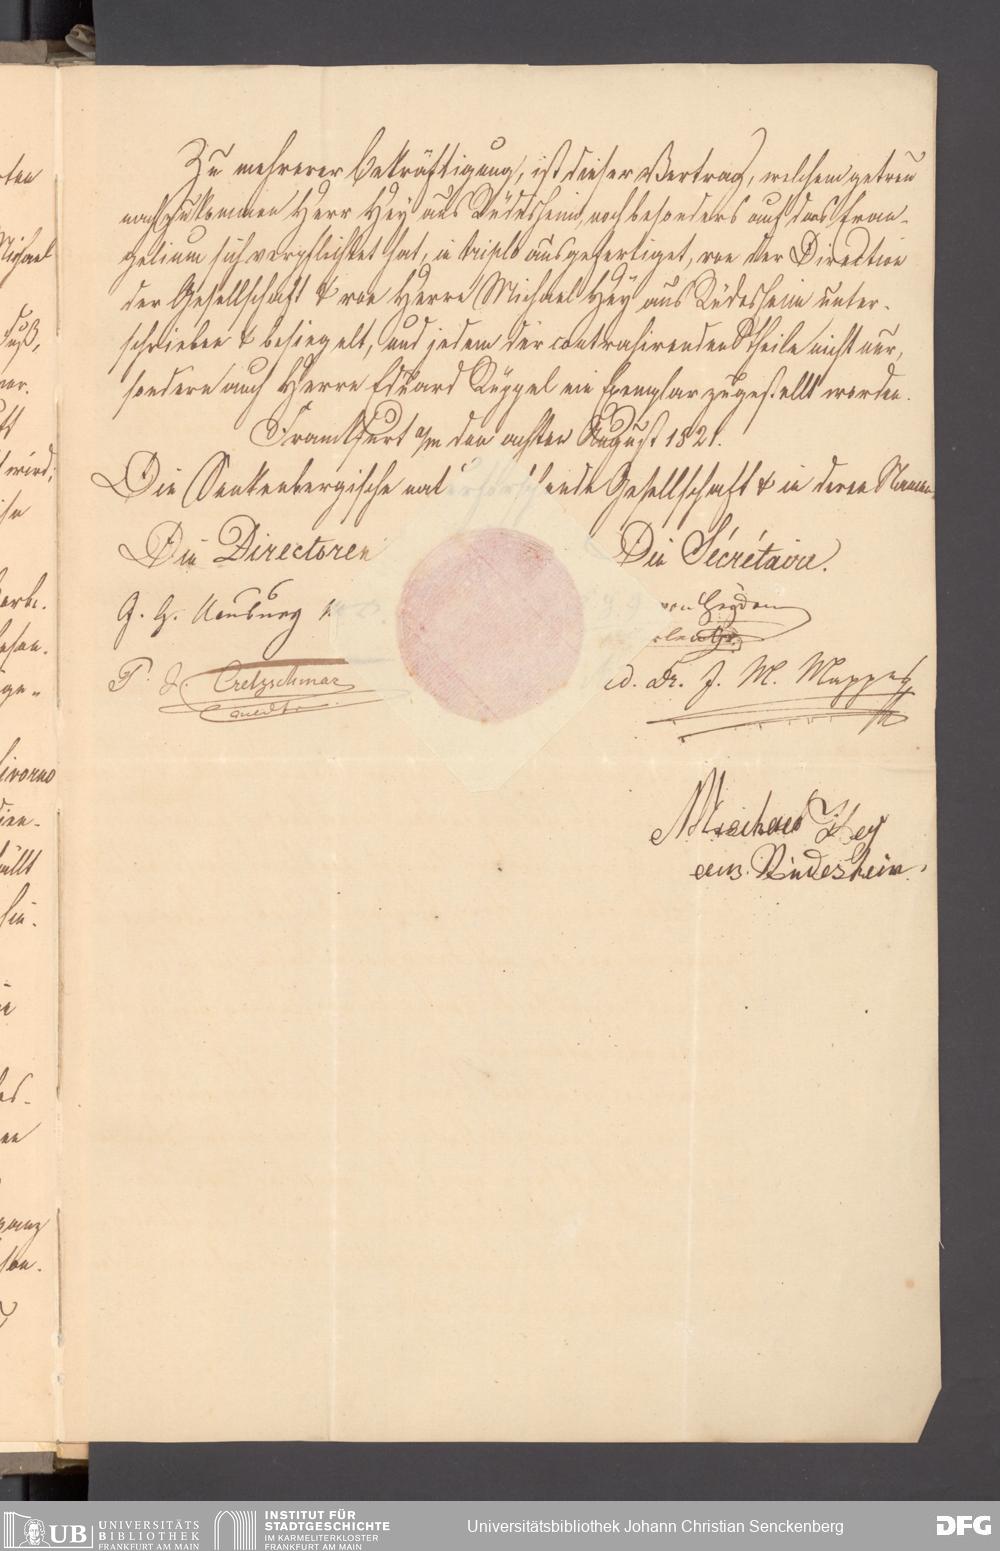 Zu mehrerer Bekräftigung, ist dieser Vertrag, welchem getreu
nachzukommen Herr Hey aus Rüdesheim, noch besonders auf das Evan-
gelium sich verpflichtet hat, in triplo ausgefertiget, von der Direction
der Gesellschaft & von Herrn Michael Hey aus Rüdesheim unter-
schrieben & besiegelt, und jedem der contrahirenden Theile nicht nur,
sondern auch Herrn Eduard Rüppel ein Exemplar zugestellt worden.
Frankfurt a/m den achten August 1821.
Die Senkenbergische nat ende Gesellschaft & in deren Namen
Die Directoren
Die Sécrétaire.
G. H. Neuburg
von Heyden
P. J. Cretzschmar
Dr. J. M. Mappes
Michael Hey
aus Rüdesheim
Michael
wird;
ivorno
ganz
UB UNIVERSITÄTS
BIBLIOTHEK
FRANKFURT AM MAIN
INSTITUT FÜR
STADTGESCHICHTE
IM KARMELITERKLOSTER
FRANKFURT AM MAIN
Universitätsbibliothek Johann Christian Senckenberg
DFG